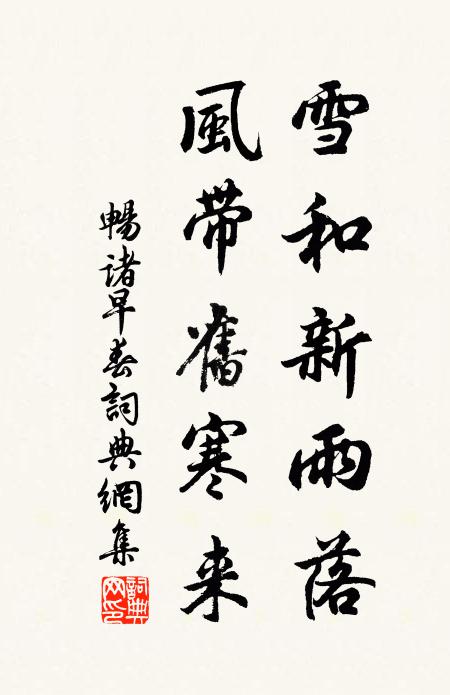 雪和新雨落
風帶舊寒来
暢諸早春詞典網集
詞典网印